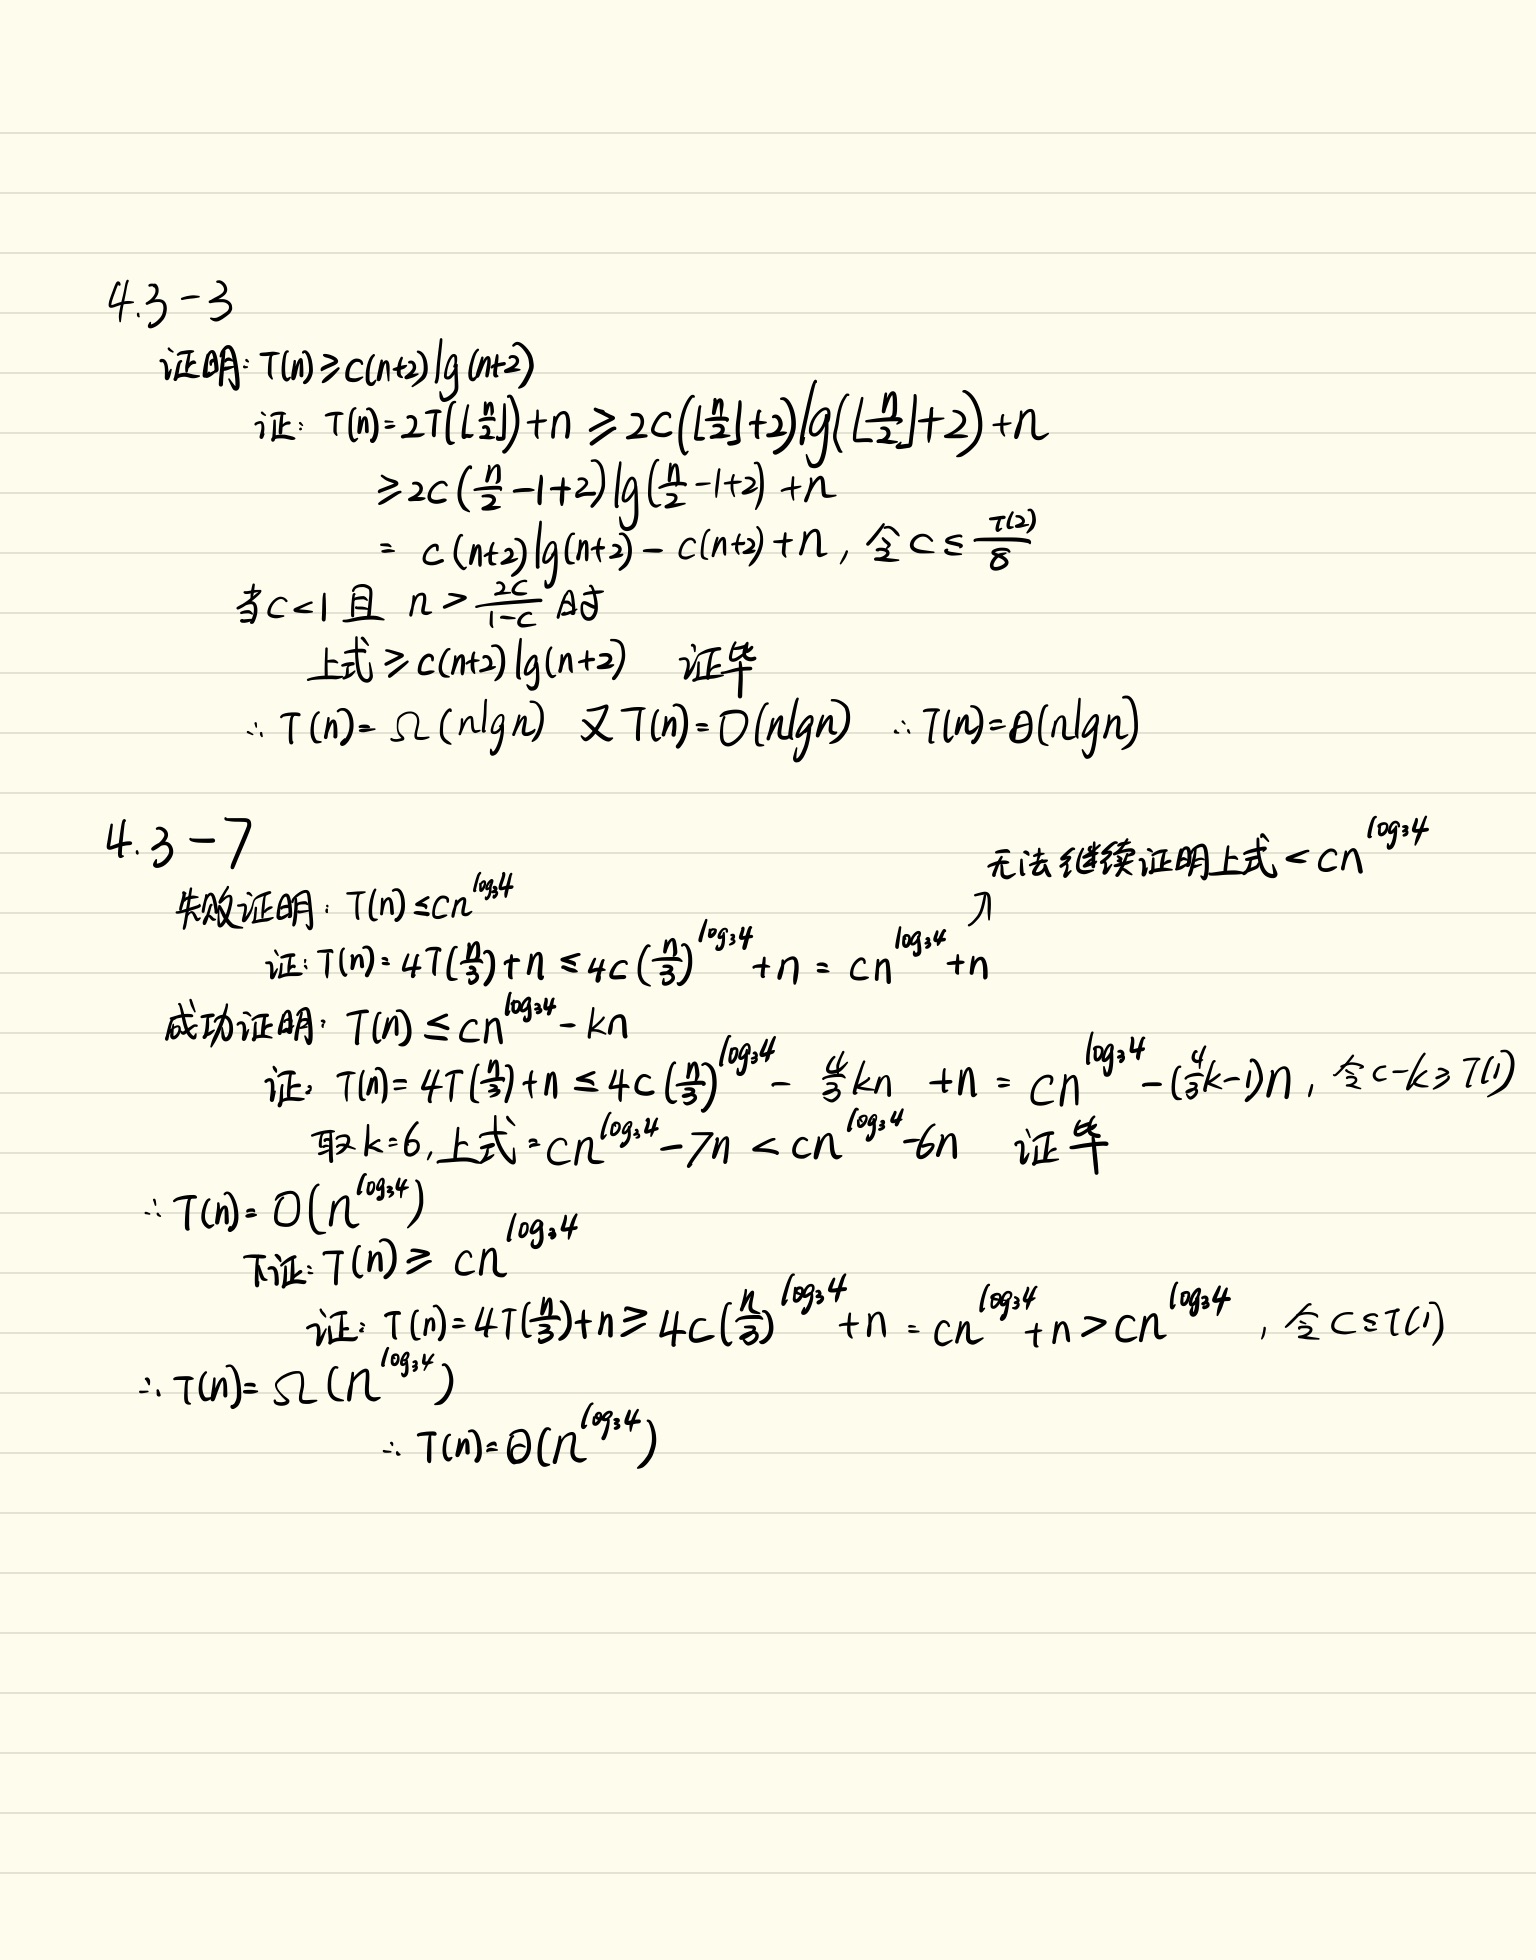 4.3-3
证明: T(n)≥c(n+2)lg(n+2)
证: T(n)=2T(⌊n/2⌋)+n ≥ 2c(⌊n/2⌋+2)lg(⌊n/2⌋+2)+n
≥2c(n/2-1+2)lg(n/2-1+2)+n
= c(n+2)lg(n+2)-c(n+2)+n, 令c≤T(2)/8
当c<1且 n>2c/(1-c) 时
上式≥c(n+2)lg(n+2) 证毕
∴ T(n)=Ω(nlgn) 又T(n)=O(nlgn) ∴T(n)=θ(nlgn)
4.3-7
无法继续证明上式<cn^log₃4
失败证明: T(n)≤cn^log₃4
↗
证: T(n)=4T(n/3)+n≤4c(n/3)^log₃4+n=cn^log₃4+n
成功证明: T(n)≤cn^log₃4-kn
证: T(n)=4T(n/3)+n≤4c(n/3)^log₃4-4/3kn+n=cn^log₃4-(4/3k-1)n, 令c-k≥T(1)
取k=6,上式=cn^log₃4-7n<cn^log₃4-6n 证毕
∴T(n)=O(n^log₃4)
下证:T(n)≥cn^log₃4
证: T(n)=4T(n/3)+n≥4c(n/3)^log₃4+n=cn^log₃4+n>cn^log₃4, 令c≤T(1)
∴T(n)=Ω(n^log₃4)
∴T(n)=θ(n^log₃4)